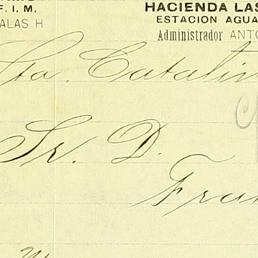 HACIENDA LAS
F. I. M.
ESTACION AGUA
ALAS H
Administrador ANTO
Sta. Catalin
Sr. D.
Fran